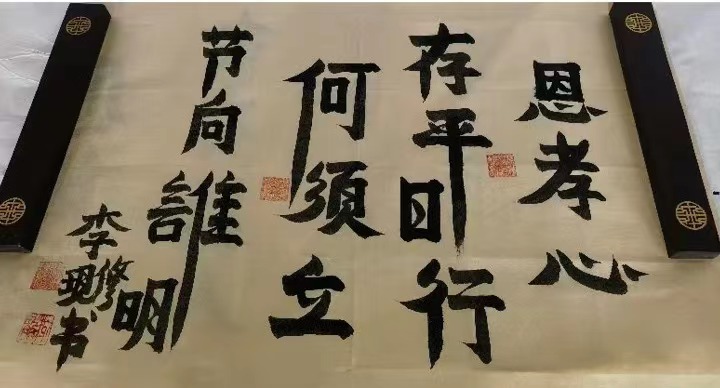 恩孝心
存平日行
何須立
节向誰明
李修现书